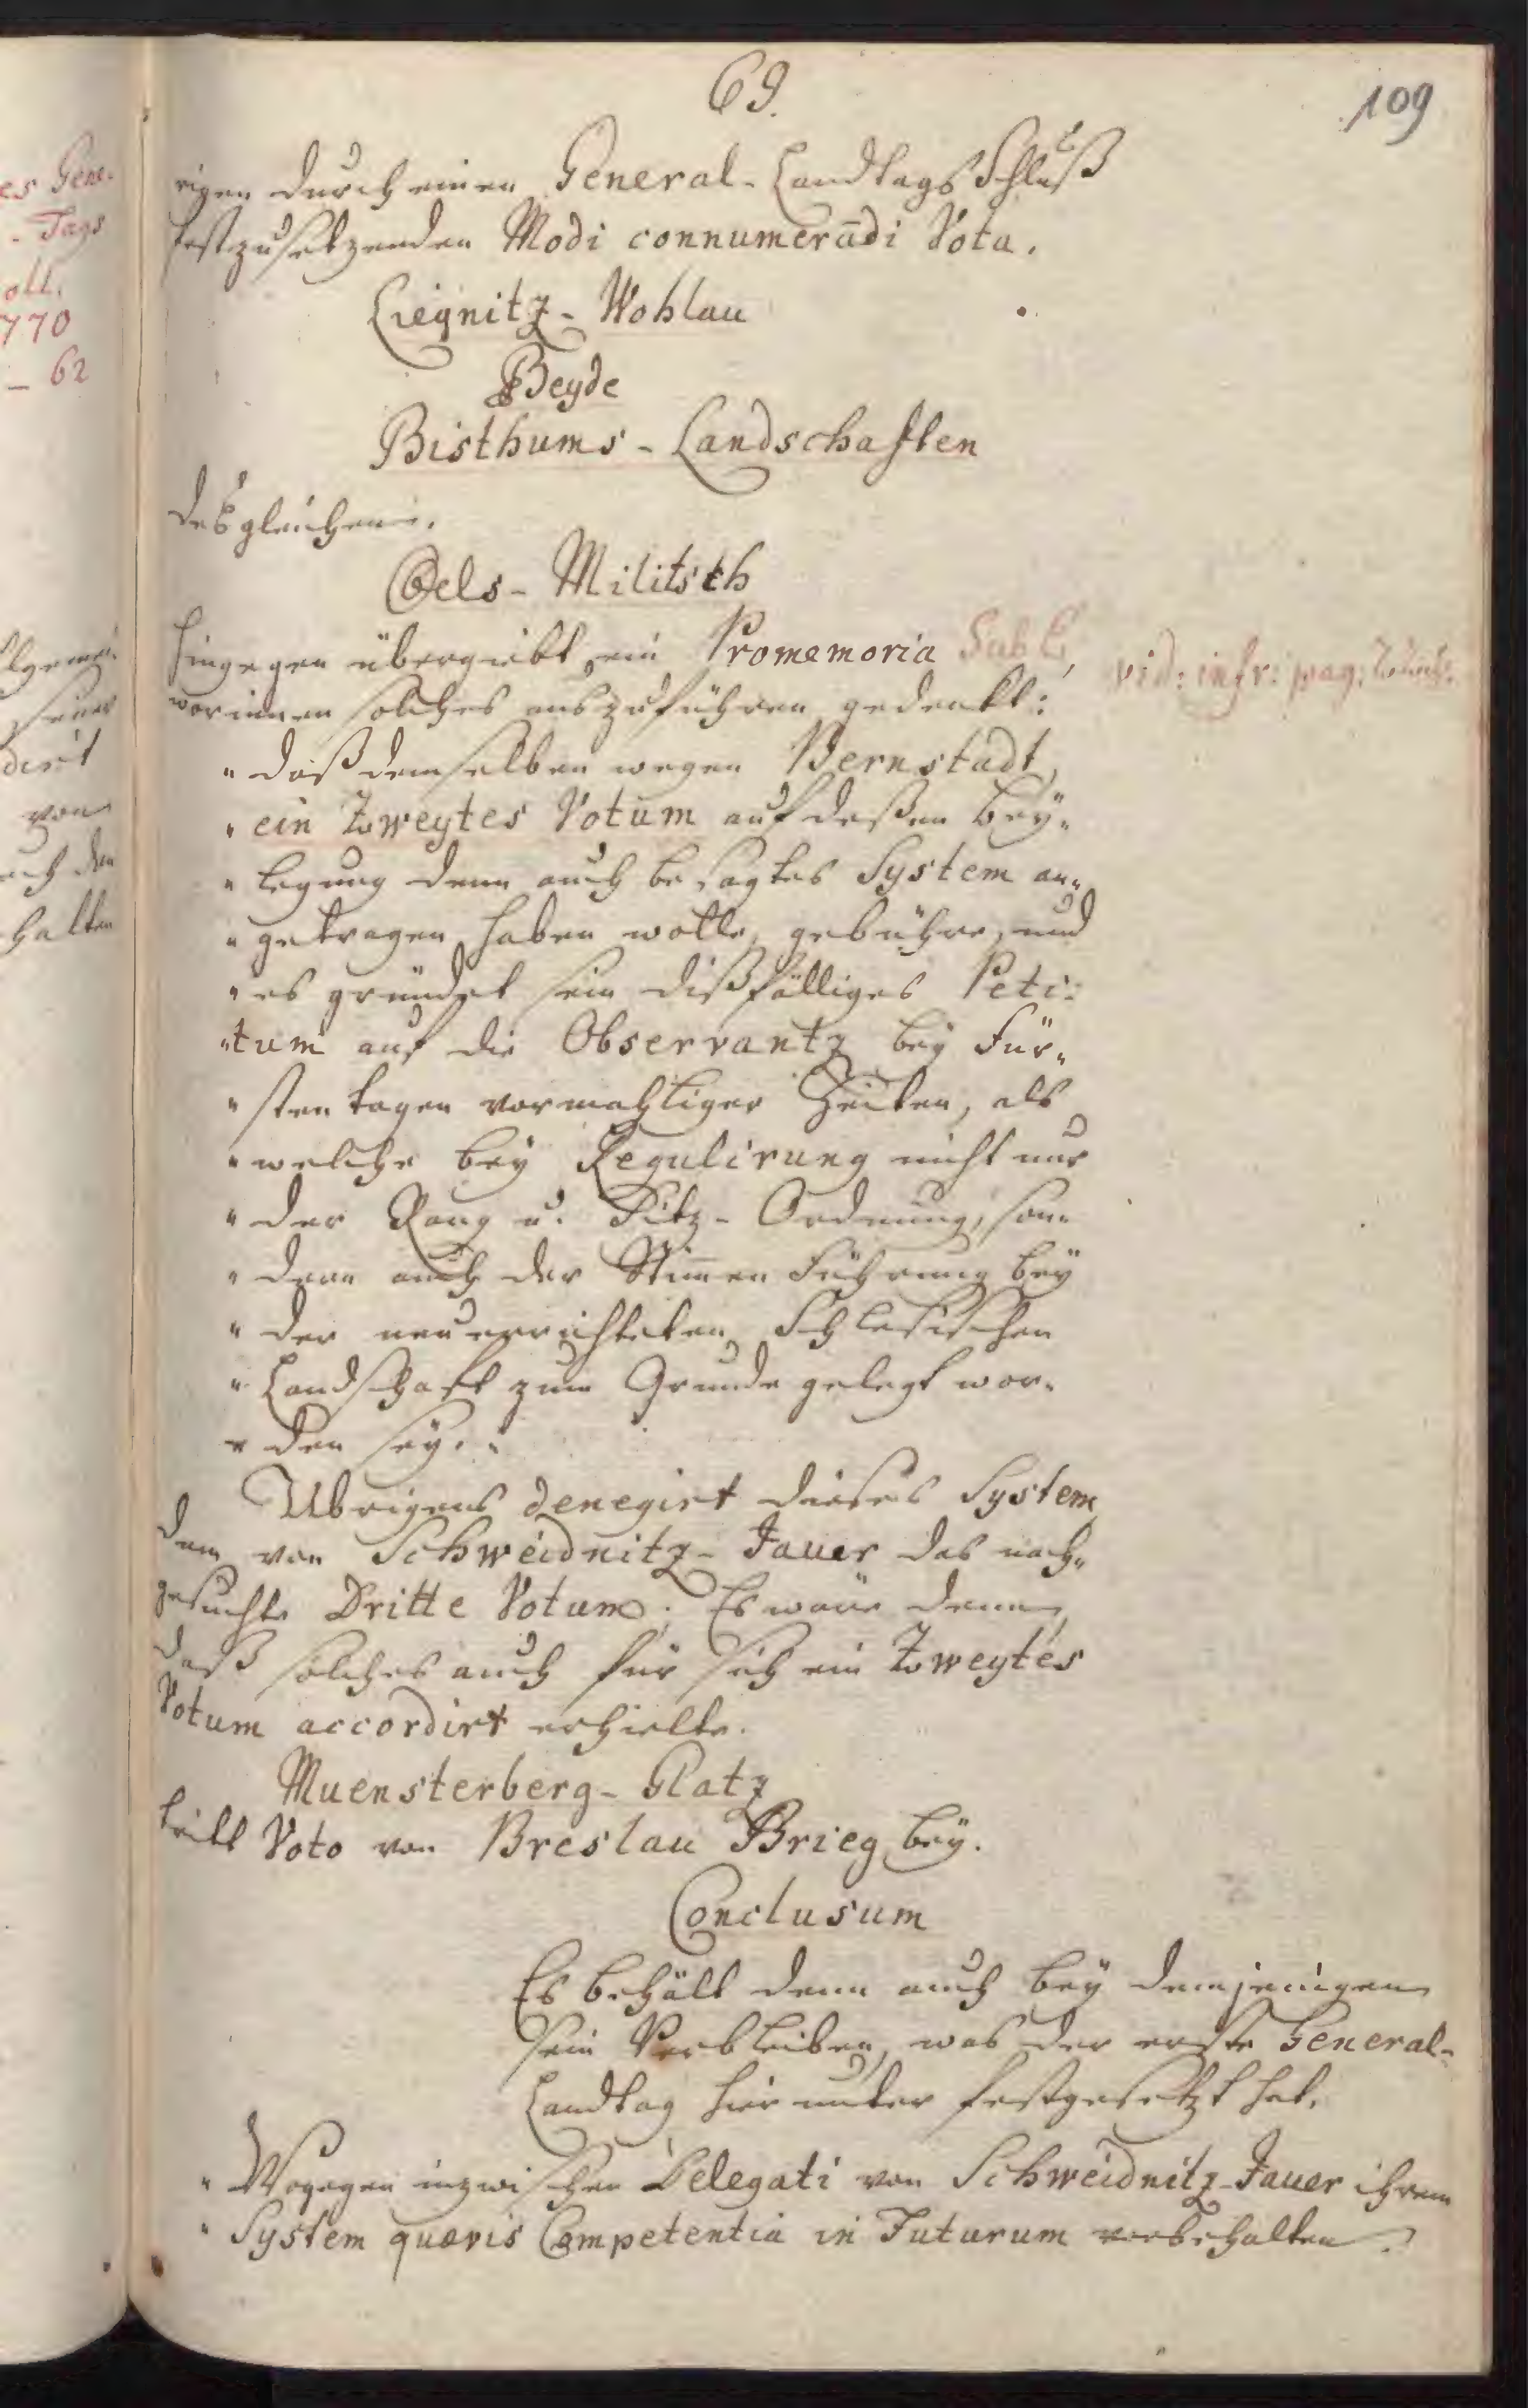 69.
109
rigen durch einen General-Landtags Schluß
festzusetzenden Modi connumerādi Vota.
Liegnitz-Wohlau
Beyde
Bisthums-Landschaften
desgleichen.
Oels-Militsch
hingegen übergiebt ein Promemoria Sub
vid: infr: pag:
worinnen solches auszuführen gedenkt:
"daß demselben wegen Bernstadt,
"ein Zweytes Votum auf deßen Bey„
"legung denn auch besagtes System an„
"getragen haben wolle, gebühre, und
"es gründet sein dißfälliges Peti:
"tum auf die Observantz bey Für„
"stentagen vormahliger Zeiten, als
"welche bey Regulirung nicht nur
"der Rang u. Sitz-Ordnung, son„
"dern auch der Stim̄en Führung bey
"der neuerrichteten Schlesischen
"Landschaft zum Grunde gelegt wor„
"den sey."
Übrigens denegirt dieses System,
dem von Schweidnitz-Jauer das nach„
gesuchte Dritte Votum; Es wäre denn,
daß solches auch für sich ein Zweytes
Votum accordirt erhielte.
Muensterberg-Glatz
tritt Voto von Breslau Brieg bey.
Conclusum
Es behält denn auch bey demjenigen
sein Verbleiben, was der erste General-
Landtag hierunter festgesetzt hat.
"Wogegen inzwischen Delegati von Schweidnitz-Jauer ihrem
"System quævis Competentia in Futurum vorbehalten.
es Gene-
-Tags
oll.
770
- 62
dirt
von
halten